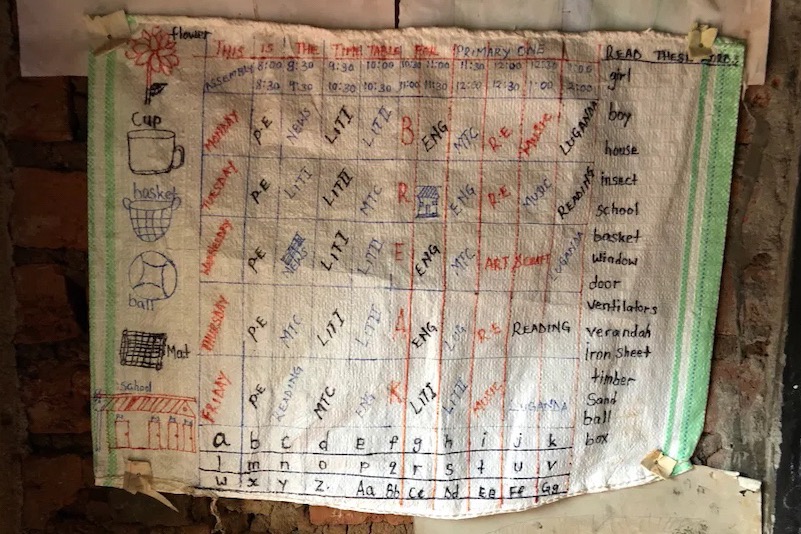 flower
THIS IS THE TIME TABLE FOR PRIMARY ONE
ASSEMBLY 8:00 8:30 9:30 10:00 10:30 11:00 11:30 12:00 12:30 1:00
8:30 9:30 10:00 10:30 11:00 11:30 12:00 12:30 1:00 2:00
MONDAY P.E NEWS LIT I LIT II B ENG MTC R.E MUSIC LUGANDA
TUESDAY P.E LIT I LIT II MTC R ENG R.E MUSIC READING
WEDNESDAY P.E NEWS LIT I LIT II E ENG MTC ART LUGANDA
THURSDAY P.E MTC LIT I LIT II A ENG LUG R.E READING
FRIDAY P.E READING MTC ENG K LIT I LIT II MUSIC LUGANDA
a b c d e f g h i j k
l m n o p q r s t u v
w x y z. Aa Bb Cc Dd Ee Ff Gg
Cup
basket
ball
Mat
School
READ THESE
girl
boy
house
insect
school
basket
window
door
ventilators
verandah
iron sheet
timber
Sand
ball
box